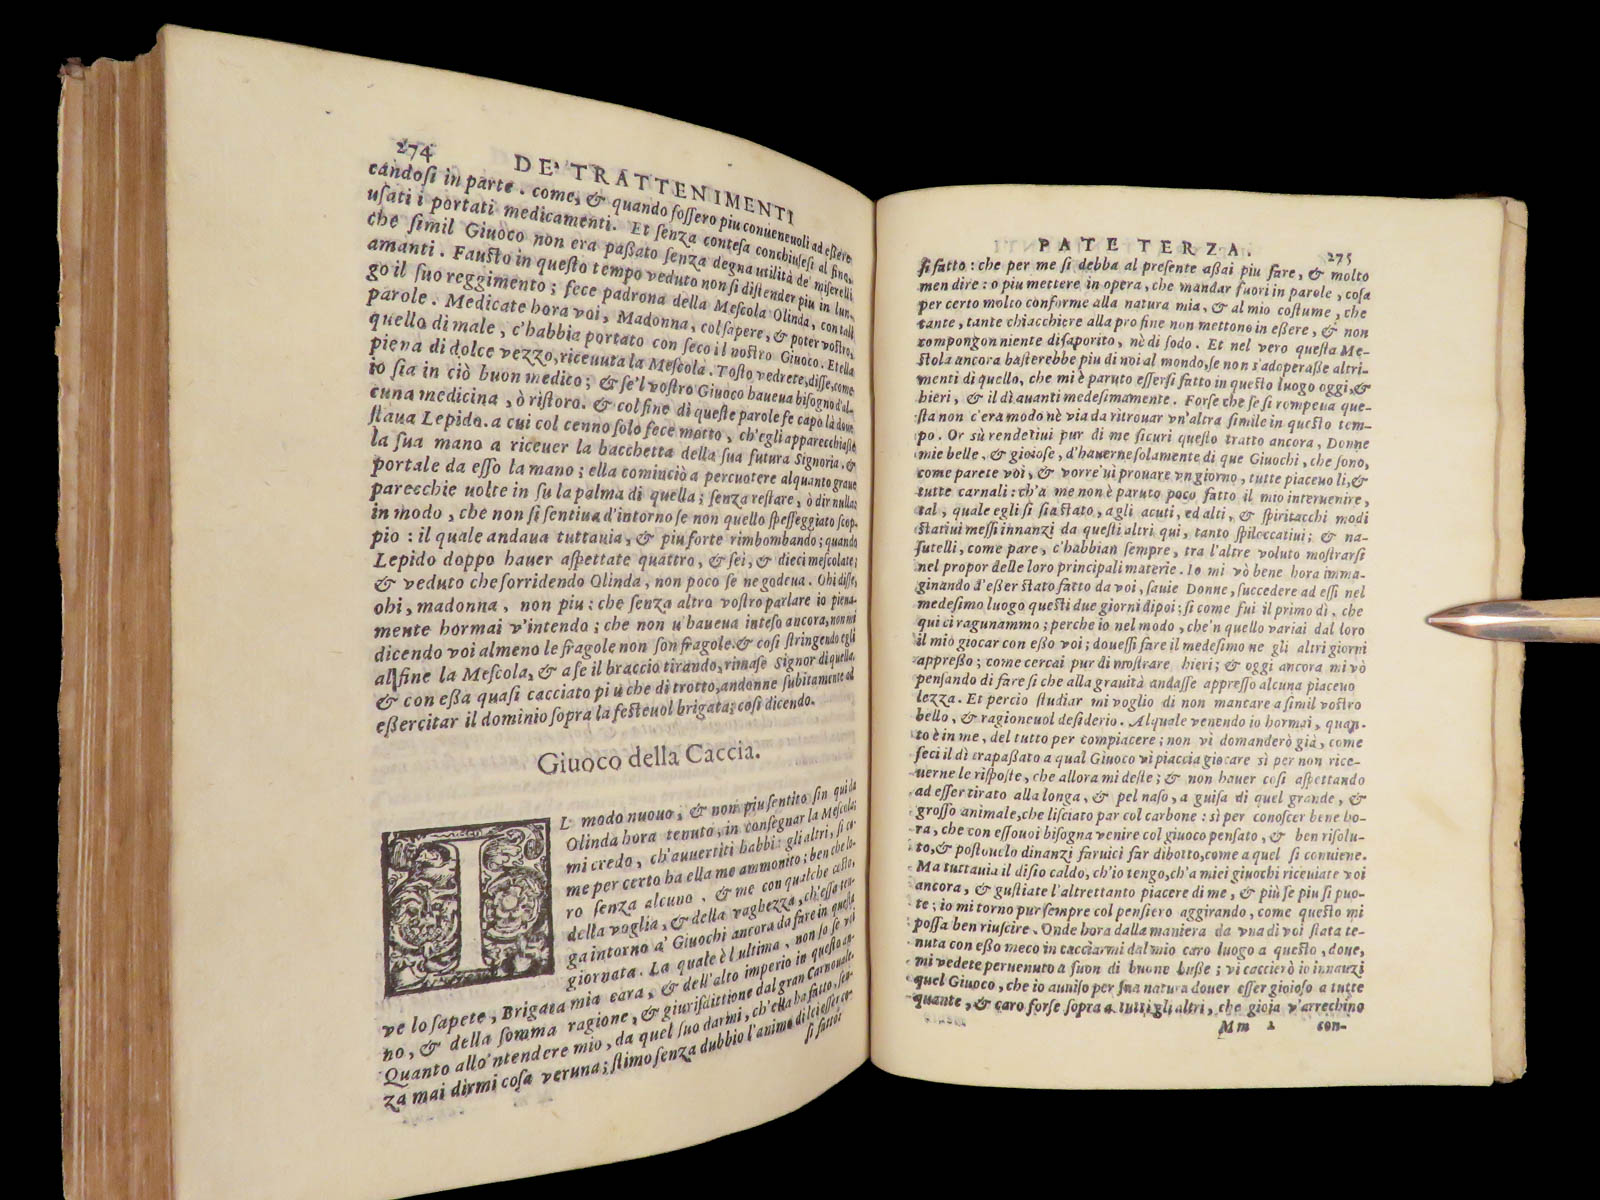 274
DE' TRATTENIMENTI
cándosi in parte. come, & quando fossero piu conueneuoli ad essere
usati i portati medicamenti. Et senza contesa conchiusesi al fine,
che simil Giuoco non era passato senza degna utilità de' miserelli
amanti. Fausto in questo tempo veduto non si distender piu in lun-
go il suo reggimento; fece padrona della Mescola Olinda, con tali
parole. Medicate hora voi, Madonna, col sapere, & poter vostro,
quello di male, c'habbia portato con seco il nostro Giuoco. Et ella
piena di dolce vezzo, riceuuta la Mescola. Tosto vedrete, disse, come
io sia in ciò buon medico; & se'l vostro Giuoco haueua bisogno d'al-
cuna medicina, ò ristoro. & col fine di queste parole fe capo là doue
staua Lepido. a cui col cenno solo fece motto, ch'egli apparecchiasse
la sua mano a riceuer la bacchetta della sua futura Signoria, &
portale da esso la mano; ella cominciò a percuotere alquanto graue
parecchie uolte in su la palma di quella; senza restare, ò dir nulla:
in modo, che non si sentiua d'intorno se non quello spesseggiato scop-
pio: il quale andaua tuttauia, & piu forte rimbombando; quando
Lepido doppo hauer aspettate quattro, & sei, & dieci mescolate;
& veduto che sorridendo Olinda, non poco se ne godeua. Ohi disse,
ohi, madonna, non piu: che senza altro vostro parlare io piena-
mente hormai v'intendo; che non u'haueua inteso ancora, non mi
dicendo voi almeno le fragole non son fragole. & cosi stringendo egli
al fine la Mescola, & a se il braccio tirando, rimase Signor di quella.
& con essa quasi cacciato piu che di trotto, andonne subitamente ad
essercitar il dominio sopra la festeuol brigata; cosi dicendo.
Giuoco della Caccia.
IL modo nuouo, & non piu sentito sin qui da
Olinda hora tenuto, in consegnar la Mescola;
mi credo, ch'auuertiti habbi gli altri, si co-
me per certo ha ella me ammonito; ben che lo-
ro senza alcuno, & me con qualche costo,
della voglia, & della vaghezza, ch'essa ten-
ga intorno a' Giuochi ancora da fare in questa
giornata. La quale è l'ultima, non so se voi
ve lo sapete, Brigata mia cara, & dell'alto imperio in questo an-
no, & della somma ragione, & giurisdittione dal gran Carnouale.
Quanto allo'ntendere mio, da quel suo darmi, ch'ella ha fatto, sen-
za mai dirmi cosa veruna; stimo senza dubbio l'animo di lei esser co-
si fatto:
PATE TERZA.
275
si fatto: che per me si debba al presente assai piu fare, & molto
men dire: o piu mettere in opera, che mandar fuori in parole, cosa
per certo molto conforme alla natura mia, & al mio costume, che
tante, tante chiacchiere alla pro fine non mettono in essere, & non
compongon niente di saporito, nè di sodo. Et nel vero questa Me-
stola ancora basterebbe piu di noi al mondo, se non s'adoperasse altri-
menti di quello, che mi è paruto essersi fatto in questo luogo oggi, &
hieri, & il dì auanti medesimamente. Forse che se si rompeua que-
sta non c'era modo nè via da ritrouar vn'altra simile in questo tem-
po. Or sù rendetiui pur di me sicuri questo tratto ancora, Donne
mie belle, & gioiose, d'hauerne solamente di que Giuochi, che sono,
come parete voi, & vorre'ui prouare vn giorno, tutte piaceuoli, &
tutte carnali: ch'a me non è paruto poco fatto il mio interuenire,
tal, quale egli si sia stato, agli acuti, ed alti, & spiritacchi modi
statiui messi innanzi da questi altri qui, tanto spiloccatiui; & na-
sutelli, come pare, c'habbian sempre, tra l'altre voluto mostrarsi
nel propor delle loro principali materie. Io mi vò bene hora imma-
ginando d'esser stato fatto da voi, sauie Donne, succedere ad essi nel
medesimo luogo questi due giorni dipoi; si come fui il primo dì, che
qui ci ragunammo; perche io nel modo, che'n quello variai dal loro
il mio giocar con esso voi; douessi fare il medesimo ne gli altri giorni
appresso; come cercai pur di mostrare hieri; & oggi ancora mi vò
pensando di fare sì che alla grauità andasse appresso alcuna piaceuo
lezza. Et percio studiar mi voglio di non mancare a simil vostro
bello, & ragioneuol desiderio. Al quale venendo io hormai, quan-
to è in me, del tutto per compiacere; non vi domanderò già, come
feci il dì trapassato a qual Giuoco vi piaccia giocare sì per non rice-
uerne le risposte, che allora mi deste; & non hauer cosi aspettando
ad esser tirato alla longa, & pel naso, a guisa di quel grande, &
grosso animale, che lisciato par col carbone: sì per conoscer bene ho-
ra, che con essouoi bisogna venire col giuoco pensato, & ben risolu-
to, & postouelo dinanzi faruici far di botto, come a quel si conuiene.
Ma tuttauia il disio caldo, ch'io tengo, ch'a miei giuochi riceuiate voi
ancora, & gustiate l'altrettanto piacere di me, & più se piu si puo-
te; io mi torno pur sempre col pensiero aggirando, come questo mi
possa ben riuscire. Onde hora dalla maniera da vna di voi stata te-
nuta con esso meco in cacciarmi dal mio caro luogo a questo, doue,
mi vedete peruenuto a suon di buone busse; vi caccierò io innanzi
quel Giuoco, che io auiso per sua natura douer esser gioioso a tutte
quante, & caro forse sopra a tutti gli altri, che gioia v'arrechino
Mm 2 con-